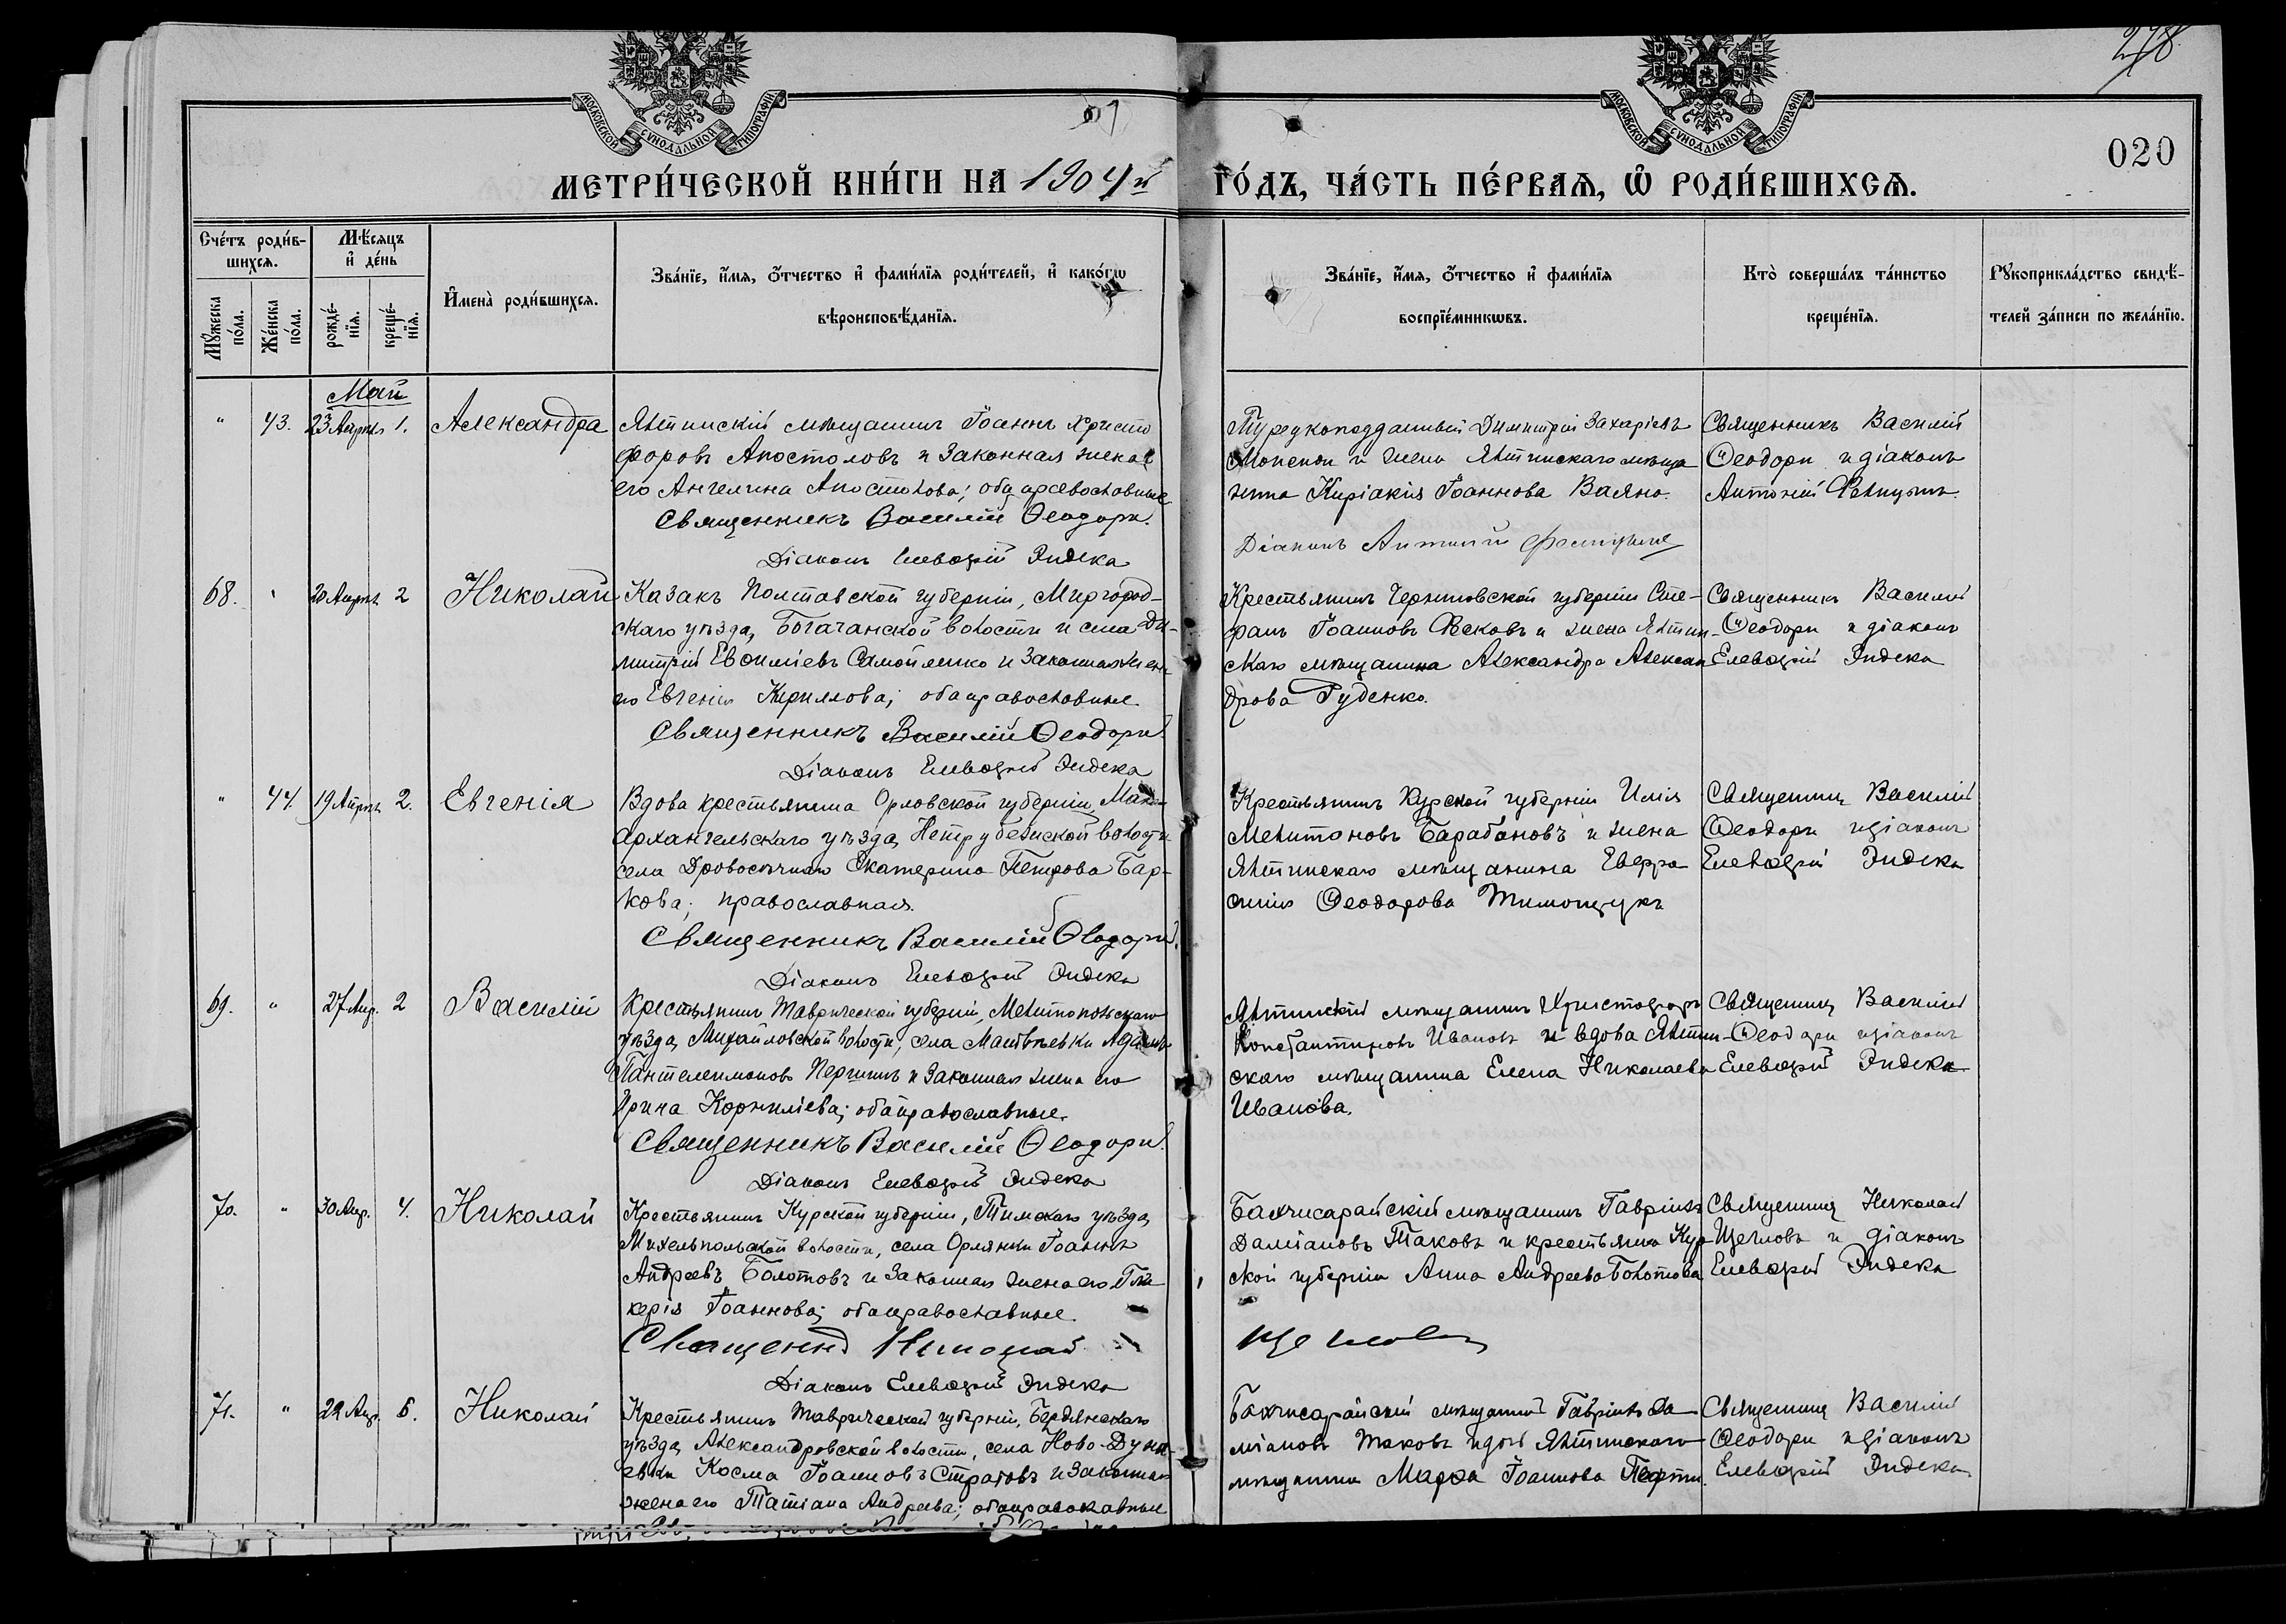 278
020
МОСКОВСКОЙ СѴНОДАЛЬНОЙ ТИПОГРАФІИ
МОСКОВСКОЙ СѴНОДАЛЬНОЙ ТИПОГРАФІИ
МЕТРИ́ЧЕСКОЙ КНИ́ГИ НА 1904й ГО́ДЪ, ЧА́СТЬ ПЕ́РВАЯ, Ѽ РОДИ́ВШИХСЯ.
Сче́тъ роди́в-
шихся.
Мꙋ́жеска по́ла.
Же́нска по́ла.
Мѣ́сяцъ
и҆ де́нь
рожде́-
нїя.
креще́-
нїя.
И҆мена̀ роди́вшихся.
Зва́нїе, и҆́мя, ѻ҆́тчество и҆ фами́лїя роди́телей, и҆ како́гѡ
вѣроисповѣ́данїя.
Зва́нїе, и҆́мя, ѻ҆́тчество и҆ фами́лїя
воспрїе́мникѡвъ.
Кто̀ соверша́лъ та́инство
креще́нїя.
Рꙋкоприкла́дство свидѣ́-
телей за́писи по жела́нїю.
Май
" 43. 23 Апрѣл. 1. Александра
Ялтинскій мѣщанинъ Іоаннъ Христо
форовъ Апостоловъ и законная жена
его Ангелина Апостолова; оба православные
Священникъ Василій Ѳеодори.
Діаконъ Елевѳерій Эндека
Турецкоподданный Димитрій Захаріевъ
и жена Ялтинскаго мѣща
нина Киріакія Іоаннова Ваяно.
Діаконъ Антоній
Священникъ Василій
Ѳеодори и діаконъ
Антоній
68. " 20 Апрѣл. 2 Николай
Казакъ Полтавской губерніи, Миргород-
скаго уѣзда, Богачанской волости и села Ди-
митрій Евѳиміевъ Самойленко и законная жена
его Евгенія Кириллова; оба православные.
Священникъ Василій Ѳеодори
Діаконъ Елевѳерій Эндека
Крестьянинъ Черниговской губерніи Сте-
фанъ Іоанновъ и жена Ялтин-
скаго мѣщанина Александра Алексан
дрова Руденко.
Священникъ Василій
Ѳеодори и діаконъ
Елевѳерій Эндека
" 44. 19 Апрѣл. 2. Евгенія
Вдова крестьянина Орловской губерніи, Мало-
архангельскаго уѣзда, волости
села Дровосѣчнаго Екатерина Петрова Бар-
кова; православная.
Священникъ Василій Ѳеодори.
Діаконъ Елевѳерій Эндека
Крестьянинъ Курской губерніи Илія
Мелитоновъ Барабановъ и жена
Ялтинскаго мѣщанина Евфра
синія Ѳеодорова Тимощукъ
Священникъ Василій
Ѳеодори и діаконъ
Елевѳерій Эндека
69. " 27 Апр. 2 Василій
Крестьянинъ Таврической губерніи, Мелитопольскаго
уѣзда, Михайловской волости, села Матвѣевки Адамъ
Пантелеимоновъ и законная жена его
Ирина Корнилієва; оба православные.
Священникъ Василій Ѳеодори.
Діаконъ Елевѳерій Эндека
Ялтинскій мѣщанинъ Христофоръ
Константиновъ Ивановъ и вдова Ялтин-
скаго мѣщанина Елена Николаева
Иванова.
Священникъ Василій
Ѳеодори и діаконъ
Елевѳерій Эндека
70. " 30 Апр. 4. Николай
Крестьянинъ Курской губерніи, Тимскаго уѣзда,
Михельпольской волости, села Орлянки Іоаннъ
Андреевъ Болотовъ и законная жена его Гли
керія Іоаннова; оба православные.
Священникъ Николай Щегловъ
Діаконъ Елевѳерій Эндека
Бахчисарайскій мѣщанинъ Гавріилъ
Даміановъ Таковъ и крестьянка Кур
ской губерніи Анна Андреева Болотова
Священникъ Николай
Щегловъ и діаконъ
Елевѳерій Эндека
71. " 22 Апр. 5. Николай
Крестьянинъ Таврической губерніи, Бердянскаго
уѣзда, Александровской волости, села Ново-Дуна-
евки Косма Іоанновъ Стратовъ и законная
жена его Татіана Андреева; оба православные
Бахчисарайскій мѣщанинъ Гавріилъ Да
міановъ Таковъ и дочь Ялтинскаго
мѣщанина Марѳа Іоаннова
Священникъ Василій
Ѳеодори и діаконъ
Елевѳерій Эндека.